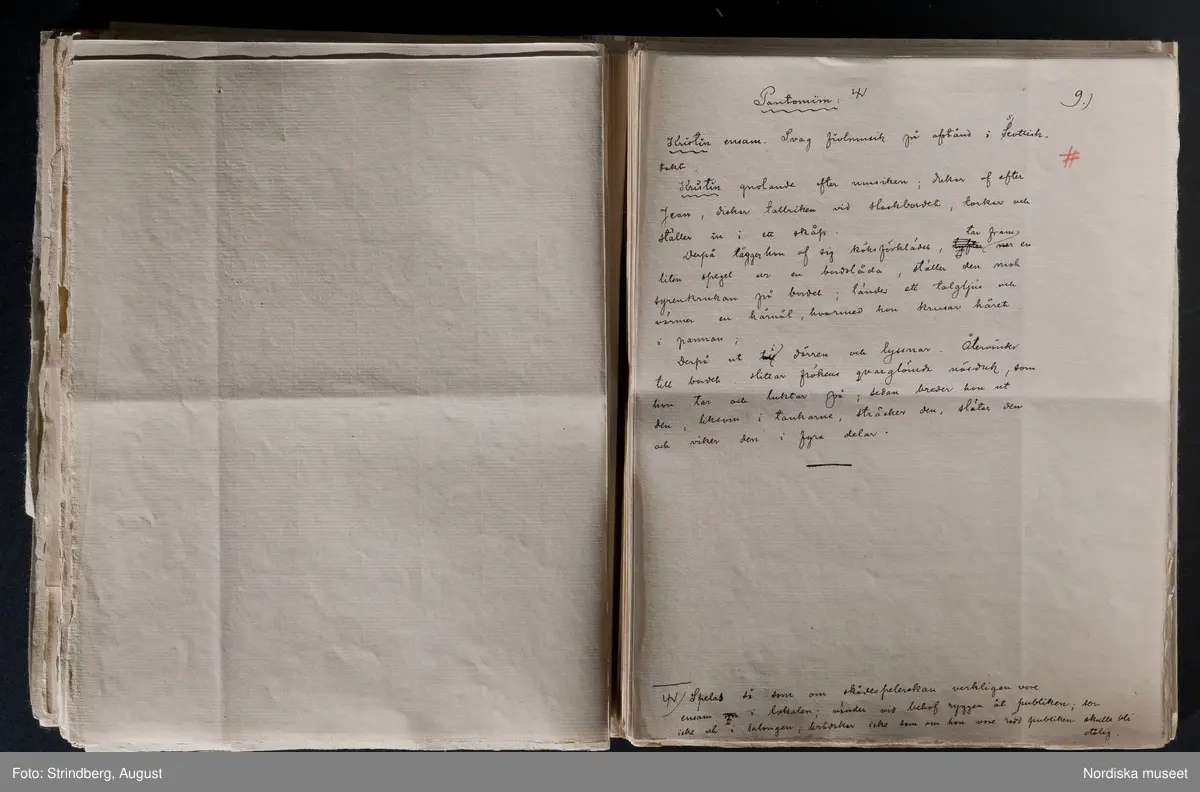 Pantomim.
9.)
Kristin ensam. Svag fiolmusik på afstånd i Scottish-
takt.
#
Kristin gnolande efter musiken; dukar af efter
Jean, diskar tallriken vid slaskbordet, torkar och
ställer in i ett skåp.
tar fram
Derpå lägger hon af sig köksförklädet, en
liten spegel ur en bordslåda, ställer den mot
syrenkrukan på bordet; tänder ett talgljus och
värmer en hårnål, hvarmed hon krusar håret
i pannan;
Derpå ut i dörren och lyssnar. Återvänder
till bordet. Hittar frökens qvarglömda näsduk, som
hon tar och luktar på; sedan breder hon ut
den, liksom i tankarne, sträcker den, slätar den
och viker den i fyra delar.
Spelas så som om skådespelerskan verkligen vore
ensam i lokalen; vänder vid behof ryggen åt publiken; ser
icke ut i salongen; brådskar icke som om hon vore rädd publiken skulle bli
otålig.
Foto: Strindberg, August
Nordiska museet